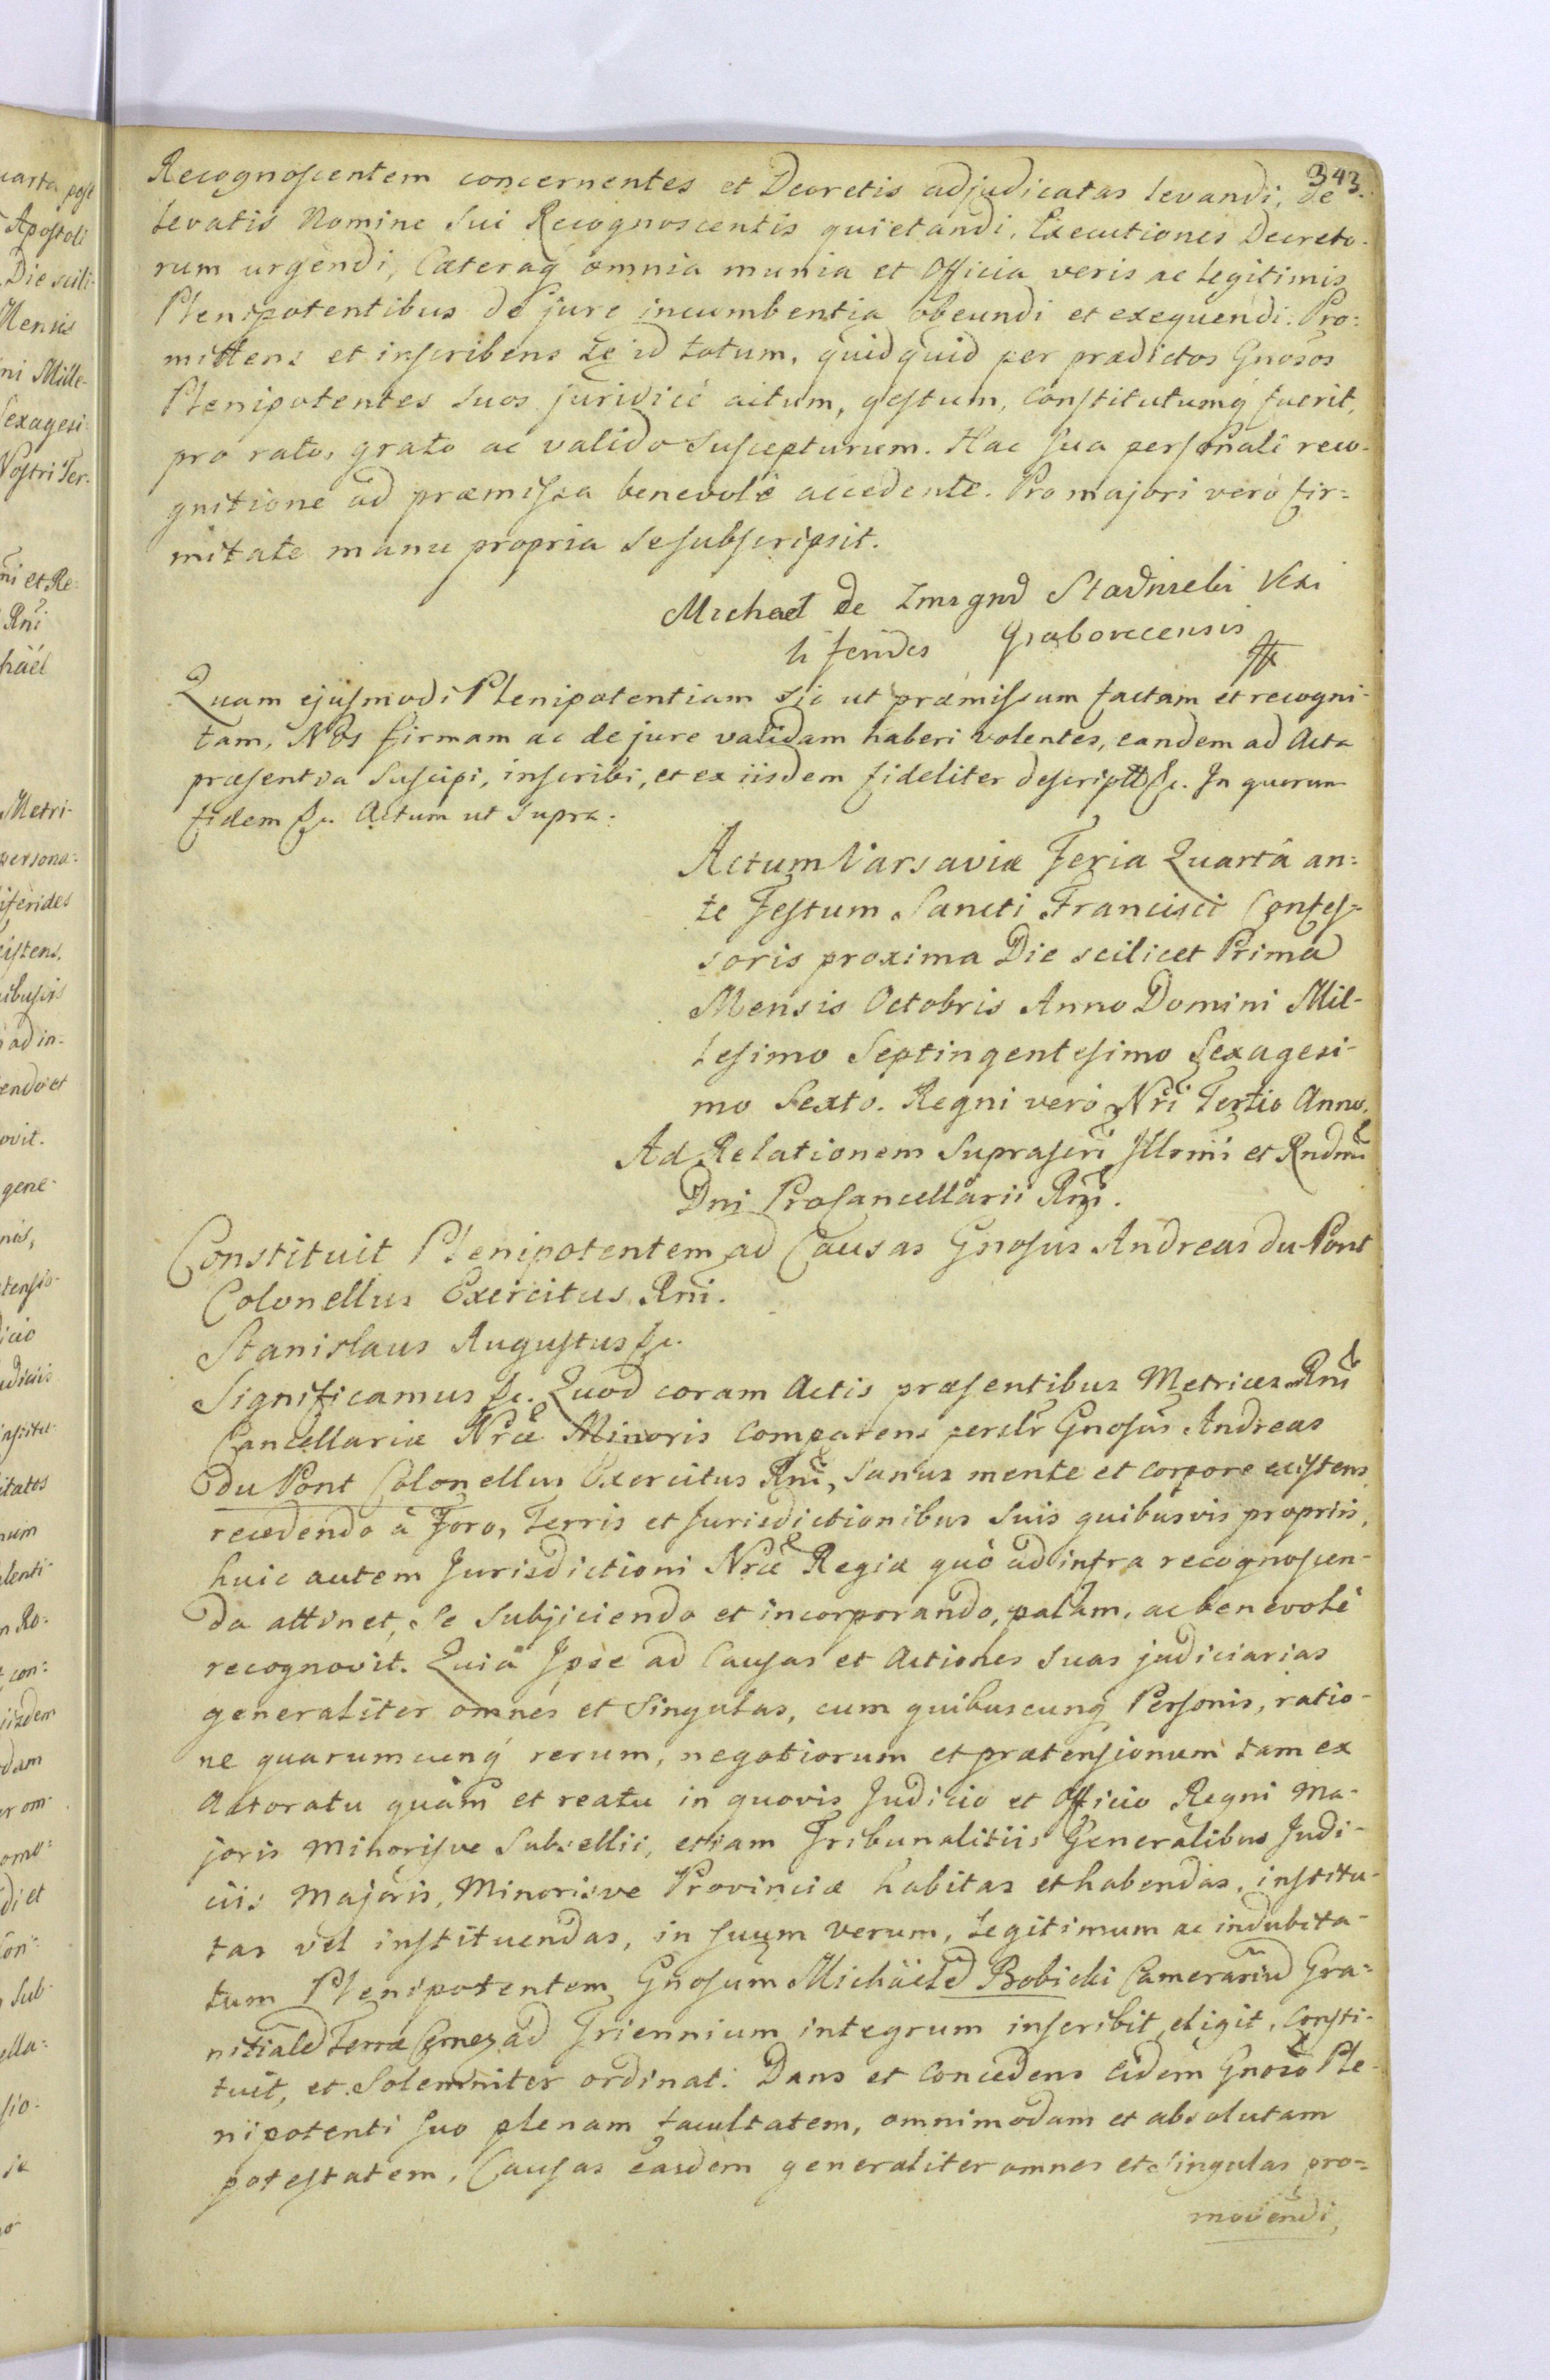 343.
Recognoscentem concernentes et Decretis adjudicatas levandi, de
levatis Nomine Sui Recognoscentis quietandi. Executiones Decreto-
rum urgendi, Cæteraq́ omnia munia et Officia veris ac legitimis
Plenipotentibus de jure incumbentia obeundi et exequendi. Pro:
mittens et inscribens Se id totum, quidquid per prædictos Gnosos
Plenipotentes Suos juridicè actum, gestum, constitutumq́ fuerit,
pro rato, grato ac valido Suscepturum. Hac sua personali reco-
gnitione ad præmissa benevolè accedente. Pro majori verò fir=
mitate manu propria Se subscripsit.
Michael de Zmigrod Stadnicki Vexi
lliferides Grabovecensis
Quam ejusmodi Plenipotentiam sic ut præmissum factam et recogni-
tam, Nos firmam ac de jure validam haberi volentes, eandem ad Acta
præsentia Suscipi, inscribi, et ex iisdem fideliter descriptt &c. In quorum
fidem &c. Actum ut Supra.
Actum Varsaviæ Feria Quartâ an=
te Festum Sancti Francisci Confes-
soris proxima Die scilicet Prima
Mensis Octobris Anno Domini Mil-
lesimo Septingentesimo Sexagesi-
mo Sexto. Regni verò Nri Tertio Anno.
Ad Relationem Suprascri Illsmi et Rndmi
Dni Procancellarii Rni.
Constituit Plenipotentem ad Causas Gnosus Andreas du-Pont
Colonellus Exercitus Rni.
Stanislaus Augustus &c.
Significamus &c. Quod coram Actis præsentibus Metrices Rni
Cancellariæ Nræ Minoris Comparens persltr Gnosus Andreas
du Pont Colonellus Exercitus Rni, Sanus mente et corpore existens
recedendo à Foro, Terris et Jurisdictionibus Suis quibusvis propriis,
huic autem Jurisdictioni Nræ Regiæ quò ad infra recognoscen-
da attinet, Se Subjiciendo et incorporando, palàm, ac benevolè
recognovit. Quia Ipse ad Causas et Actiones Suas judiciarias
generaliter omnes et Singulas, cum quibuscunq́ Personis, ratio-
ne quarumcunq́ rerum, negotiorum et prætensionum tam ex
Actoratu quàm et reatu in quovis Judicio et Officio Regni Ma-
joris Minorisve Subsellii, etiam Tribunalitiis Generalibus Judi-
ciis Majoris, Minorisve Provinciæ habitas et habendas, institu-
tas vel instituendas, in suum verum, Legitimum ac indubita-
tum Plenipotentem Gnosum Michäele Bobicki Camerariu Gra=
nitiale Terræ Cernez ad Triennium integrum inscribit, eligit, Consti-
tuit, et Solemniter ordinat. Dans et Concedens eidem Gnoso Ple-
nipotenti suo plenam facultatem, omnimodam et absolutam
potestatem, Causas easdem generaliter omnes et Singulas pro=
movendi,